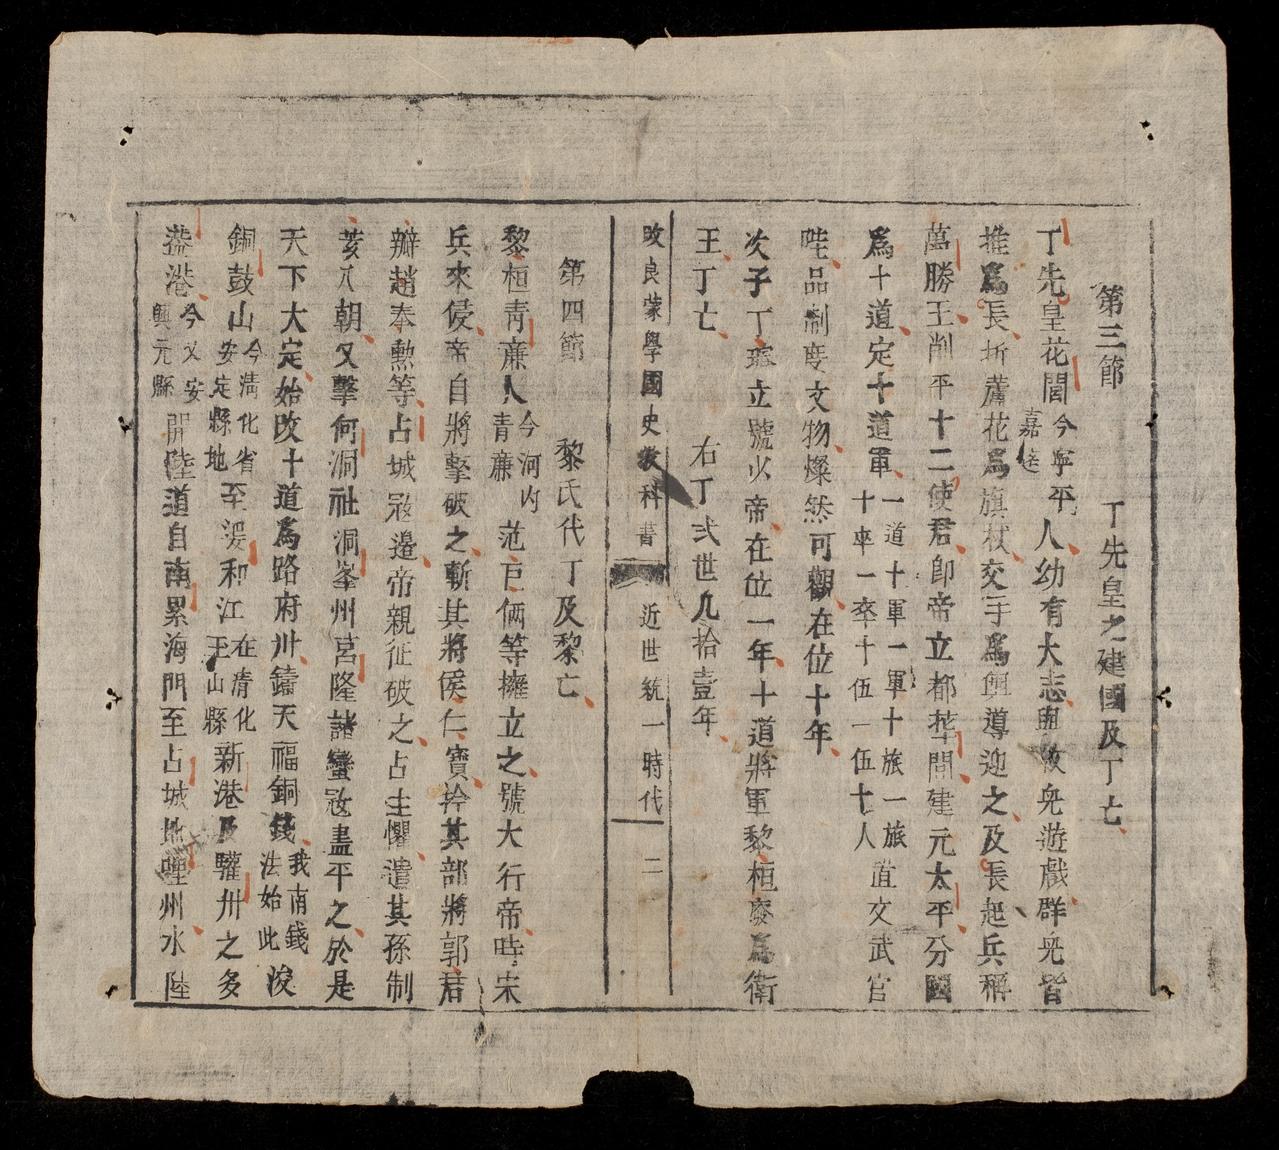 第三節　丁先皇之建國及丁亡
丁先皇花閭今寧平嘉遠人幼有大志與牧兒遊戲群兒皆
推爲長折蘆花爲旗杖交手爲輿導迎之及長起兵稱
萬勝王削平十二使君卽帝立都華閭建元太平分國
爲十道定十道軍一道十軍一軍十旅一旅十卒一卒十伍一伍十人置文武官
陛品制度文物燦然可觀在位十年
次子丁璿立號少帝在位一年十道將軍黎桓廢爲衛
王丁亡　右丁弍世凡拾壹年
改良蒙學國史教科書　近世統一時代　二
第四節　黎氏代丁及黎亡
黎桓靑亷人今河内青亷范巨倆等擁立之號大行帝時宋
兵來侵帝自將擊破之斬其將侯仁寶擒其部將郭君
辦趙奉勲等占城寇邊帝親征破之占主懼遣其孫制
荄入朝又擊何洞社洞峯州宮隆諸蠻寇盡平之於是
天下大定始改十道爲路府州鑄天福銅錢我南錢法始此浚
銅鼓山今淸化省安定縣地至湲和江在清化玉山縣新港及驩州之多
蓋港今乂安興元縣開陸道自南累海門至占城地哩州水陸